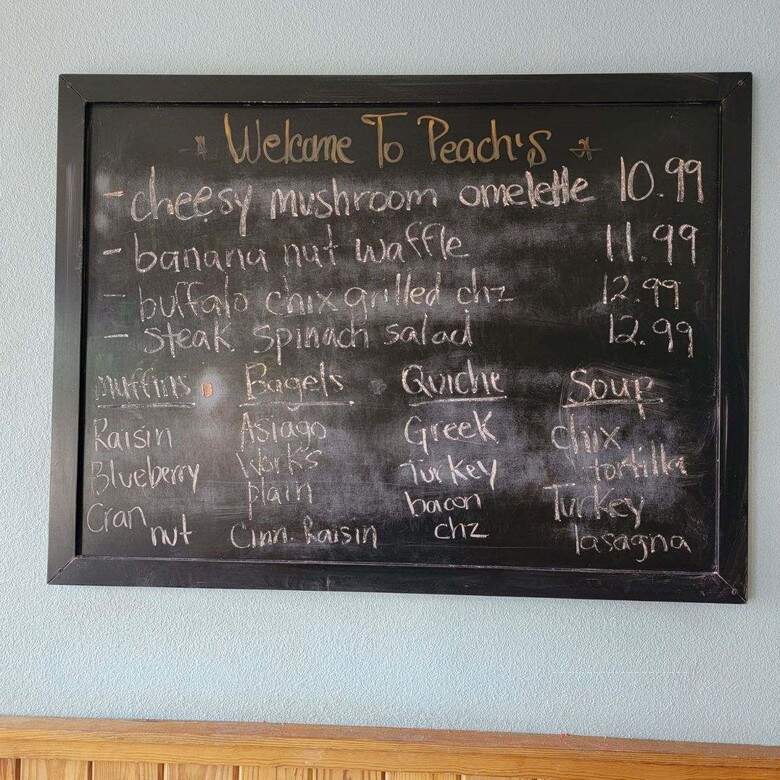 Welcome To Peach's
- cheesy mushroom omelette 10.99
- banana nut waffle 11.99
- buffalo chix grilled chz 12.99
- steak spinach salad 12.99
muffins
Raisin
Blueberry
Cran
nut
Bagels
Asiago
Works
plain
Cinn. Raisin
Quiche
Greek
Turkey
bacon
chz
Soup
chix
tortilla
Turkey
lasagna